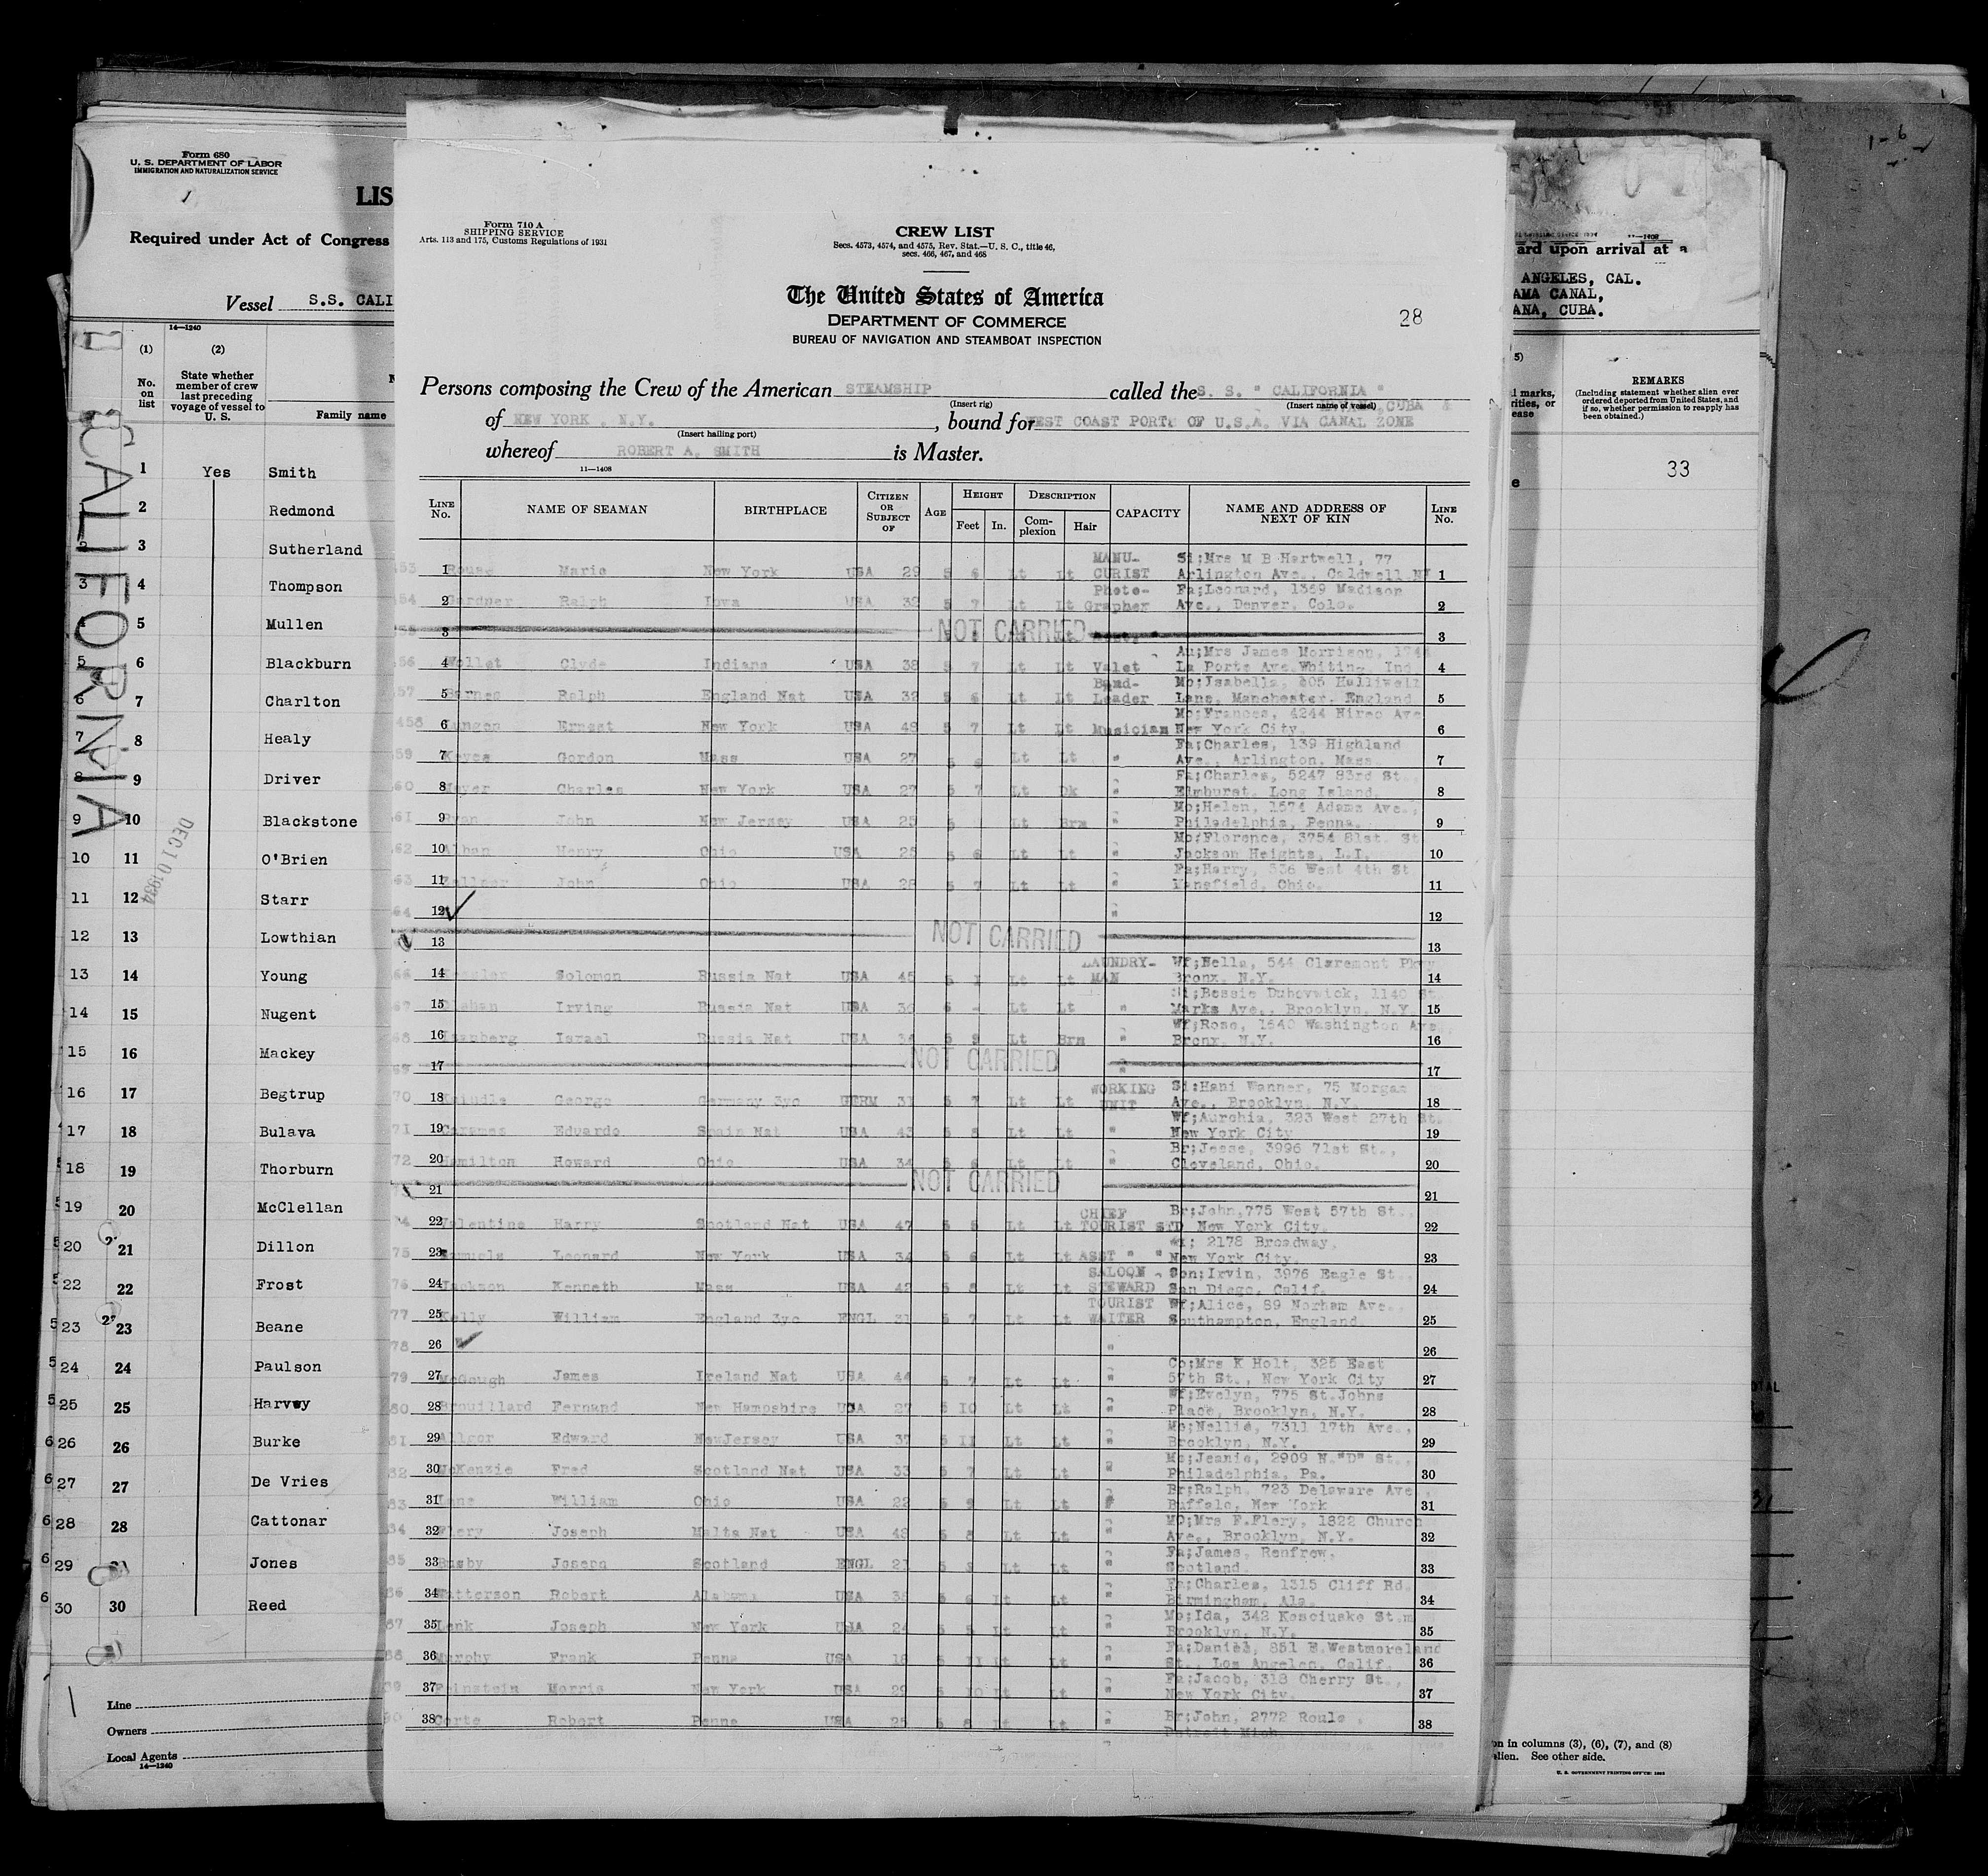 Form 680
U. S. DEPARTMENT OF LABOR
IMMIGRATION AND NATURALIZATION SERVICE
LIS
Required under Act of Congress
Vessel S.S. CALI
14—1240
(1) (2)
No. on list
State whether member of crew last preceding voyage of vessel to U. S.
Family name
CALIFORNIA
DEC 10 1934
1 Yes Smith
2 Redmond
3 Sutherland
3 4 Thompson
4 5 Mullen
5 6 Blackburn
6 7 Charlton
7 8 Healy
8 9 Driver
9 10 Blackstone
10 11 O'Brien
11 12 Starr
12 13 Lowthian
13 14 Young
14 15 Nugent
15 16 Mackey
16 17 Begtrup
17 18 Bulava
18 19 Thorburn
19 20 McClellan
20 21 Dillon
22 22 Frost
23 23 Beane
24 24 Paulson
25 25 Harvey
26 26 Burke
27 27 De Vries
28 28 Cattonar
29 Jones
30 30 Reed
Line
Owners
Local Agents
14—1240
Form 710 A
SHIPPING SERVICE
Arts. 113 and 175, Customs Regulations of 1931
CREW LIST
Secs. 4573, 4574, and 4575, Rev. Stat.—U. S. C., title 46,
secs. 466, 467, and 468
The United States of America
DEPARTMENT OF COMMERCE
BUREAU OF NAVIGATION AND STEAMBOAT INSPECTION
28
Persons composing the Crew of the American STEAMSHIP called the S. S. " CALIFORNIA "
(Insert rig) (Insert name of vessel) CUBA &
of NEW YORK , N.Y. , bound for WEST COAST PORTS OF U.S.A. VIA CANAL ZONE
(Insert hailing port)
whereof ROBERT A. SMITH is Master.
11—1408
LINE No. NAME OF SEAMAN BIRTHPLACE CITIZEN OR SUBJECT OF AGE HEIGHT Feet In. DESCRIPTION Complexion Hair CAPACITY NAME AND ADDRESS OF NEXT OF KIN LINE No.
MANU- Si;Mrs M B Hartwell, 77
1 Marie New York USA 29 5 6 Lt Lt CURIST Arlington Ave., Caldwell NJ 1
Photo- Fa;Leonard, 1359 Madison
2 Gardner Ralph Iowa USA 32 5 7 Lt Lt Grapher Ave., Denver, Colo. 2
3 NOT CARRIED 3
Au;Mrs James Morrison, 1744
4 Wollet Clyde Indiana USA 38 5 7 Lt Lt Valet La Porte Ave.Whiting, Ind 4
Band- Mo;Isabella, 205 Hulliwell
5 Barnes Ralph England Nat USA 32 5 6 Lt Lt Leader Lane, Manchester, England 5
Mo;Frances, 4244 Ave
6 Ernest New York USA 48 5 7 Lt Lt Musician New York City. 6
Fa;Charles, 139 Highland
7 Keyes Gordon Mass USA 27 5 Lt Lt " Ave., Arlington, Mass. 7
Fa;Charles, 5247 83rd St.
8 Meyer Charles New York USA 27 5 7 Lt Dk " Elmhurst, Long Island. 8
Mo;Helen, 1574 Adams Ave.,
9 Ryan John New Jersey USA 25 5 Lt Brn " Philadelphia, Penna. 9
Mo;Florence, 3754 81st. St
10 Alban Henry Ohio USA 25 5 6 Lt Lt " Jackson Heights, L.I. 10
Fa;Harry, 536 West 4th St
11 John Ohio USA 28 5 7 Lt Lt " Mansfield, Ohio. 11
12 " 12
13 NOT CARRIED 13
LAUNDRY- Wf;Bella, 544 Claremont Pkwy
14 Solomon Russia Nat USA 45 5 1 Lt Lt MAN Bronx, N.Y. 14
Si;Bessie Dubovwick, 1140 St.
15 Irving Russia Nat USA 36 6 - Lt Lt " Marks Ave., Brooklyn, N.Y. 15
Wf;Rose, 1540 Washington Ave
16 Israel Russia Nat USA 34 5 9 Lt Brn " Bronx, N.Y. 16
17 NOT CARRIED " 17
WORKING Si;Hani Wanner, 75 Morgan
18 George Germany 3yo GERM 31 5 7 Lt Lt UNIT Ave., Brooklyn, N.Y. 18
Wf;Aurchia, 323 West 27th St.
19 Eduardo Spain Nat USA 43 5 5 Lt Lt " New York City 19
Br;Jesse, 3996 71st St.,
20 Hamilton Howard Ohio USA 34 5 6 Lt Lt " Cleveland, Ohio. 20
21 NOT CARRIED 21
CHIEF Br;John,775 West 57th St.
22 Valentine Harry Scotland Nat USA 47 5 5 Lt Lt TOURIST STD New York City. 22
2178 Broadway,
23 Samuels Leonard New York USA 34 5 6 Lt Lt ASST " " New York City. 23
SALOON Son;Irvin, 3976 Eagle St.
24 Jackson Kenneth Mass USA 42 5 8 Lt Lt STEWARD San Diego, Calif. 24
TOURIST Wf;Alice, 89 Norham Ave.
25 Kelly William England 3yo ENGL 31 5 7 Lt Lt WAITER Southampton, England. 25
26 " 26
Co;Mrs K Holt, 325 East
27 McGough James Ireland Nat USA 44 5 7 Lt Lt " 57th St., New York City 27
Wf;Evelyn, 775 St.Johns
28 Brouillard Fernand New Hampshire USA 27 5 10 Lt Lt " Place, Brooklyn, N.Y. 28
Mo;Nellie, 7311 17th Ave.,
29 Allgor Edward NewJersey USA 37 5 11 Lt Lt " Brooklyn, N.Y. 29
Mo;Jeanie, 2909 N."D" St.,
30 McKenzie Fred Scotland Nat USA 33 5 7 Lt Lt " Philadelphia, Pa. 30
Br;Ralph, 723 Delaware Ave.,
31 Lane William Ohio USA 22 5 9 Lt Lt " Buffalo, New York 31
Mo;Mrs F.Flery, 1822 Church
32 Flery Joseph Malta Nat USA 48 5 8 Lt Lt " Ave., Brooklyn, N.Y. 32
Fa;James, Renfrew,
33 Busby Joseph Scotland ENGL 21 5 8 Lt Lt " Scotland. 33
Fa;Charles, 1315 Cliff Rd.
34 Patterson Robert Alabama USA 38 5 6 Lt Lt " Birmingham, Ala. 34
Mo;Ida, 342 Kosciuske St.m
35 Lenk Joseph New York USA 24 5 Lt Lt " Brooklyn, N.Y. 35
Fa;Daniel, 851 W.Westmoreland
36 Murphy Frank Penna USA 18 5 11 Lt Lt " St., Los Angeles, Calif. 36
Fa;Jacob, 318 Cherry St.,
37 Feinstein Morris New York USA 29 5 10 Lt Lt " New York City. 37
38 Corte Robert Penna USA 25 5 8 Lt Lt " Br;John, 2772 Roule 38
Detroit Mich.
ard upon arrival at a
ANGELES, CAL.
AMA CANAL,
ANA, CUBA.
REMARKS
(Including statement whether alien ever ordered deported from United States, and if so, whether permission to reapply has been obtained.)
33
on in columns (3), (6), (7), and (8)
alien. See other side.
U. S. GOVERNMENT PRINTING OFFICE